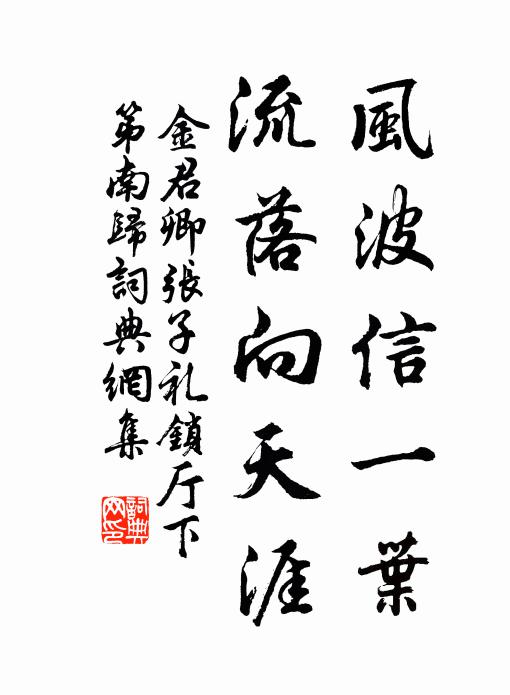 風波信一葉
流落向天涯
金君卿張子礼鎖厅下
第南歸詞典網集
詞典網印